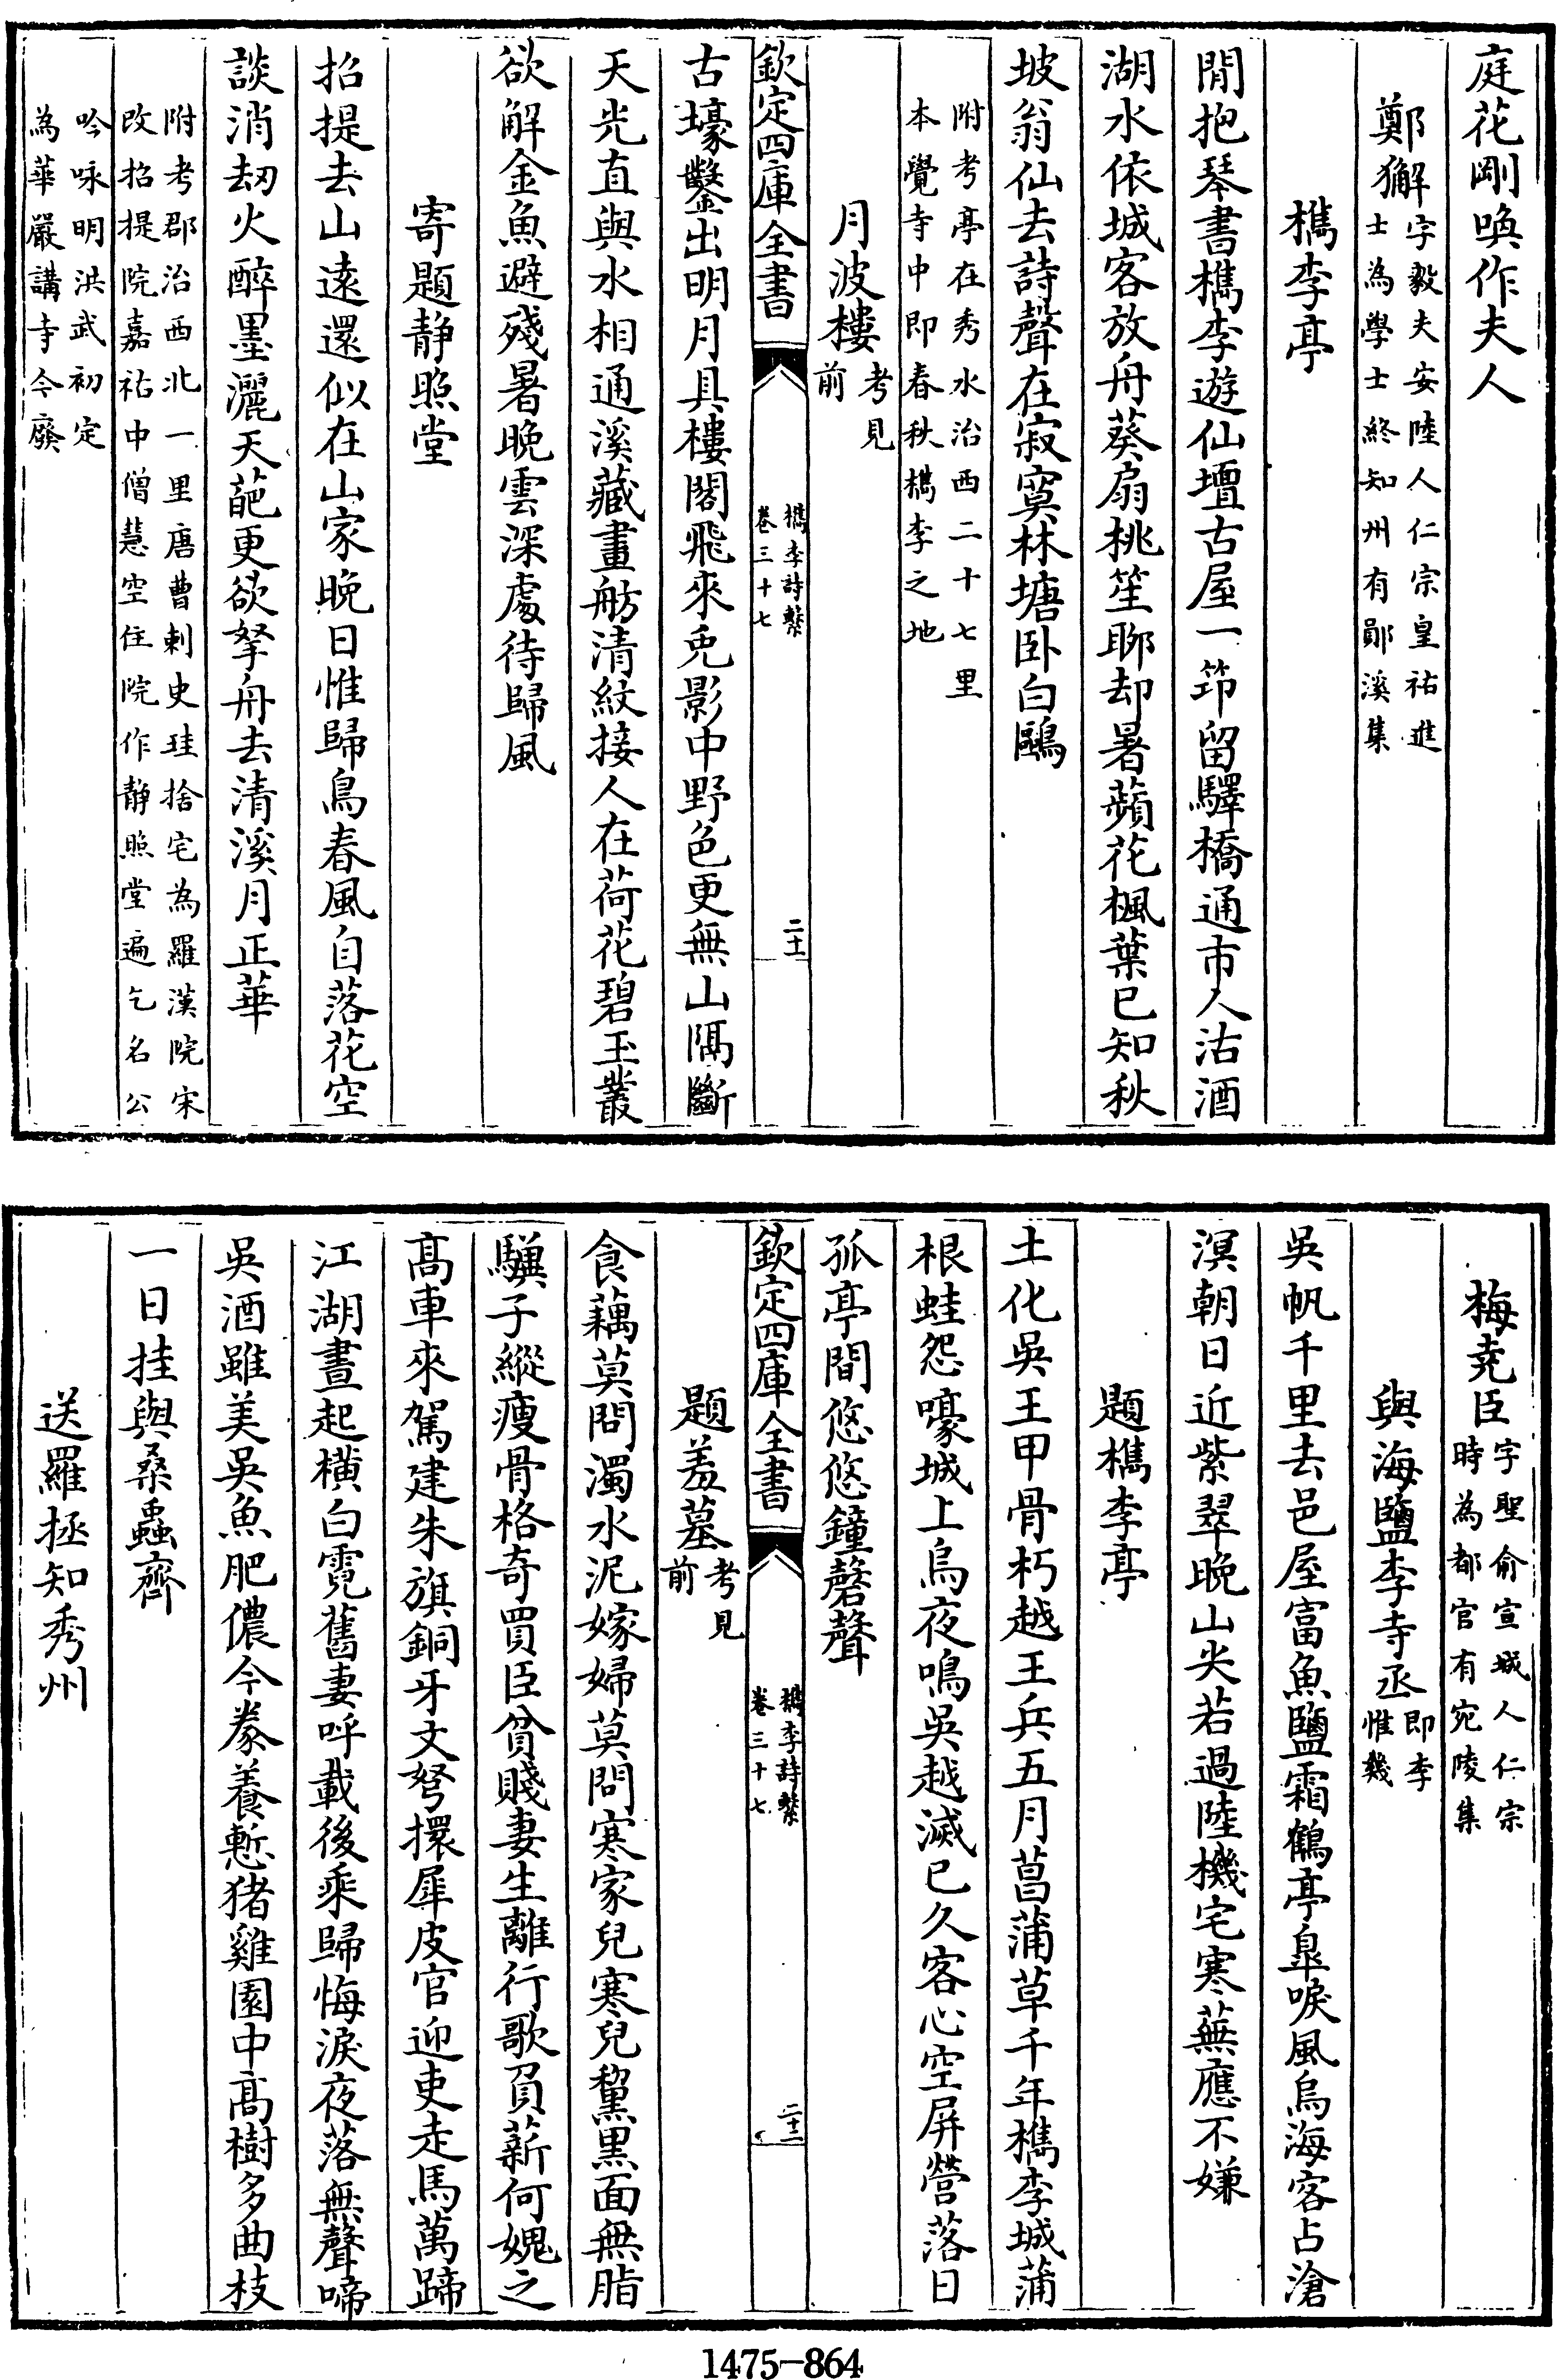 庭花剛喚作夫人
鄭獬字毅夫安陸人仁宗皇祐進
士為學士終知州有鄖溪集
檇李亭
閒抱琴書檇李遊仙壇古屋一笻留驛橋通市人沽酒
湖水依城客放舟葵扇桃笙聊却暑蘋花楓葉已知秋
坡翁仙去詩聲在寂寞林塘卧白鷗
附考亭在秀水治西二十七里
本覺寺中即春秋檇李之地
月波樓考見
前
欽定四庫全書
檇李詩繫
卷三十七
二十一
古壕鑿出明月具樓閣飛來兎影中野色更無山隔斷
天光直與水相通溪藏畫舫清紋接人在荷花碧玉叢
欲解金魚避殘暑晩雲深處待歸風
寄題静照堂
招提去山遠還似在山家晩日惟歸鳥春風自落花空
談消刼火醉墨灑天葩更欲拏舟去清溪月正華
附考郡治西北一里唐曹刺史珪捨宅為羅漢院宋
改招提院嘉祐中僧慧空住院作静照堂遍乞名公
吟咏明洪武初定
為華嚴講寺今廢
梅堯臣字聖俞宣城人仁宗
時為都官有宛陵集
與海鹽李寺丞即李
惟幾
吳帆千里去邑屋富魚鹽霜鶴亭臯唳風烏海客占滄
溟朝日近紫翠晩山尖若過陸機宅寒蕪應不嫌
題檇李亭
土化吳王甲骨朽越王兵五月菖蒲草千年檇李城蒲
根蛙怨嚎城上烏夜鳴吳越滅已久客心空屏營落日
孤亭間悠悠鐘磬聲
欽定四庫全書
檇李詩繫
卷三十七
二十二
題羞墓考見
前
食藕莫問濁水泥嫁婦莫問寒家兒寒兒黧黑面無脂
驥子縱瘦骨格奇買臣貧賤妻生離行歌負薪何媿之
髙車來駕建朱旗銅牙文弩擐犀皮官迎吏走馬萬蹄
江湖晝起横白霓舊妻呼載後乘歸悔淚夜落無聲啼
吳酒雖美吳魚肥儂今豢養慙猪雞園中髙樹多曲枝
一日挂與桑蟲齊
送羅拯知秀州
1475-864